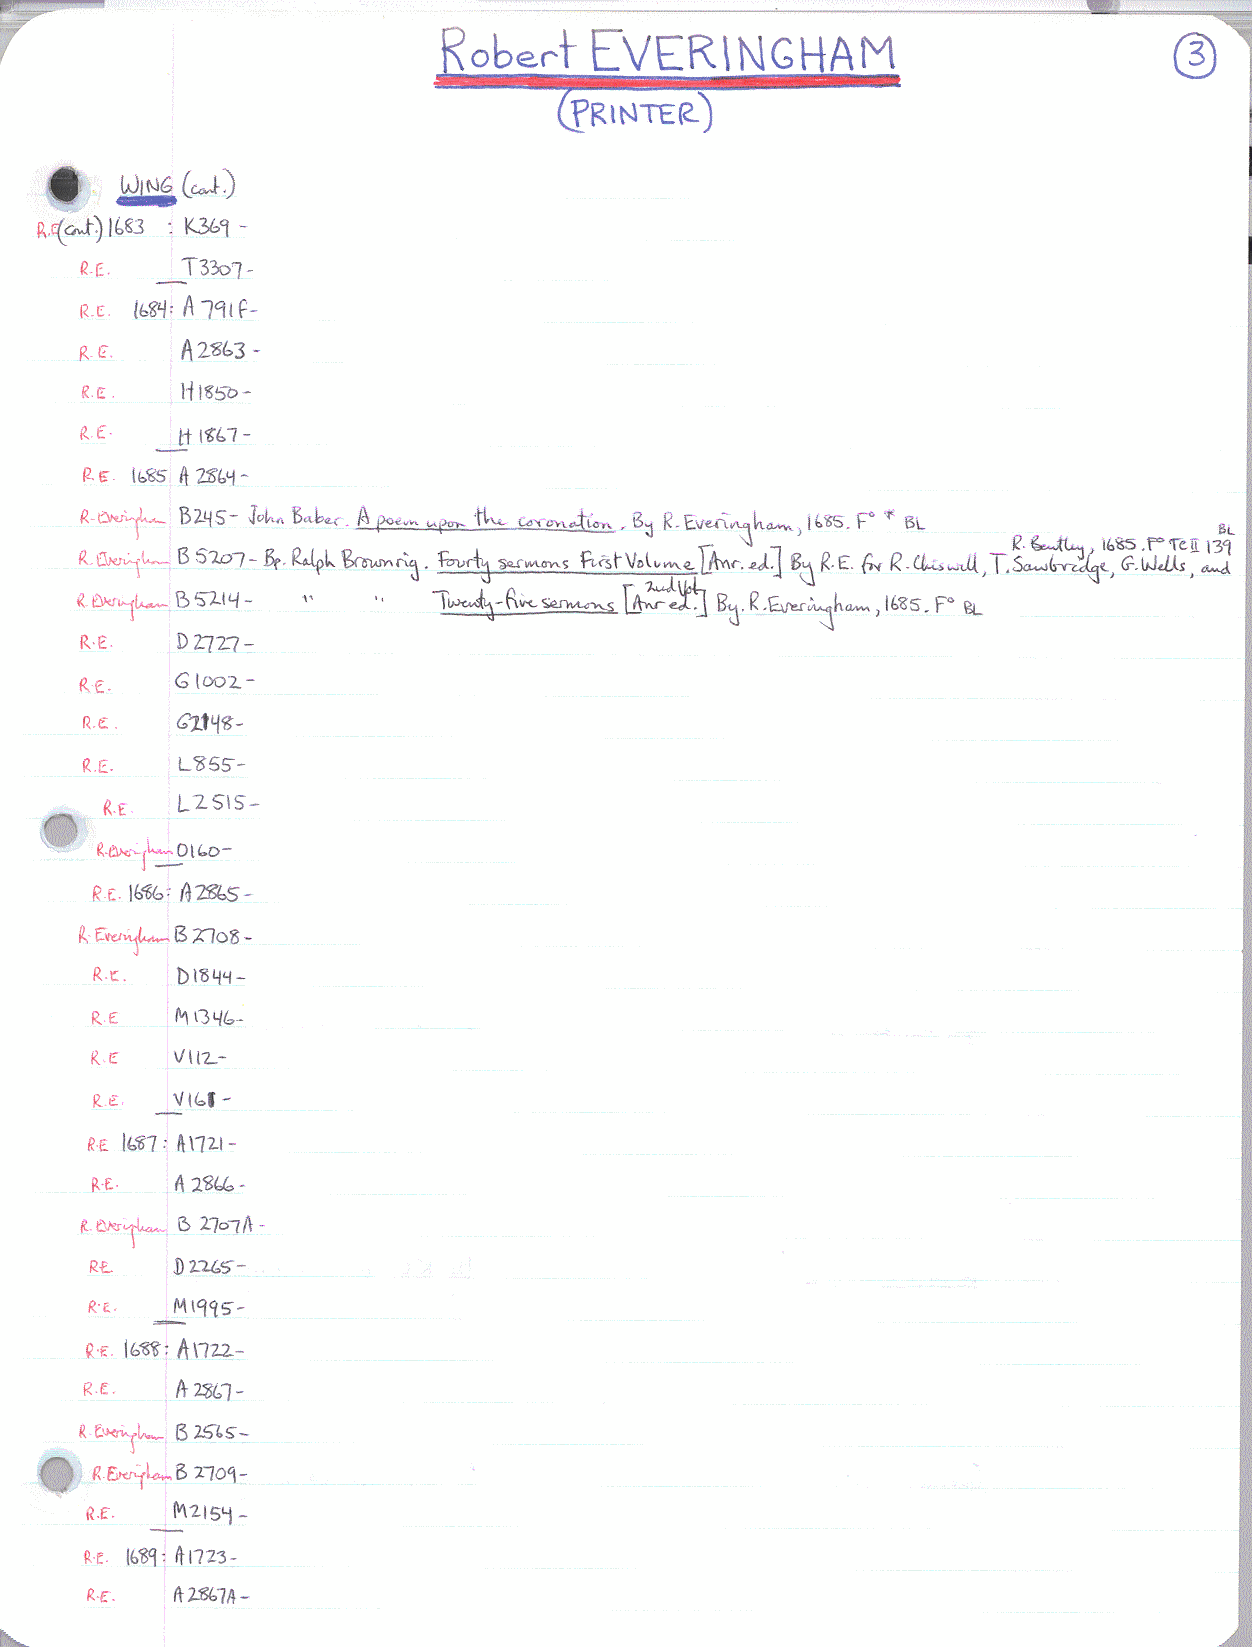 Robert EVERINGHAM
3
(PRINTER)
WING (cont.)
R.E (cont.) 1683 : K369 -
R.E. T3307 -
R.E. 1684: A791F -
R.E. A2863 -
R.E. H1850 -
R.E. H1867 -
R.E. 1685 A2864 -
R. Everingham B245 - John Baber. A poem upon the coronation. By R. Everingham, 1685. F° * BL
BL
R. Bentley, 1685. F° TC II 139
R. Everingham B5207 - Bp. Ralph Brownrig. Fourty sermons First Volume [Anr. ed.] By R.E. for R. Chiswell, T. Sawbridge, G. Wells, and
2nd Vol.
R. Everingham B5214 - " " Twenty-five sermons [Anr ed.] By. R. Everingham, 1685. F° BL
R.E. D2727 -
R.E. G1002 -
R.E. G2148 -
R.E. L855 -
R.E. L2515 -
R. Everingham O160 -
R.E. 1686: A2865 -
R. Everingham B2708 -
R.E. D1844 -
R.E M1346 -
R.E V112 -
R.E. V161 -
R.E 1687: A1721 -
R.E. A2866 -
R. Everingham B 2707A -
R.E. D2265 -
R.E. M1995 -
R.E. 1688: A1722 -
R.E. A2867 -
R. Everingham B2565 -
R. Everingham B2709 -
R.E. M2154 -
R.E. 1689: A1723 -
R.E. A2867A -